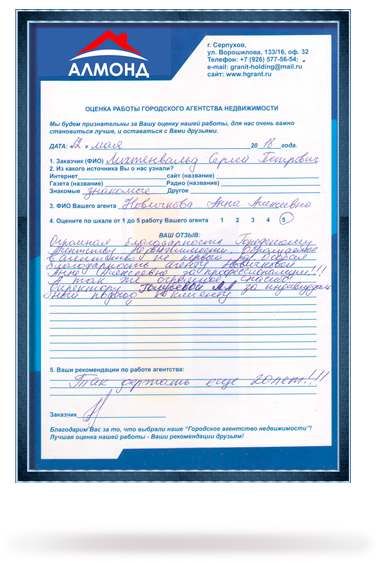 АЛМОНД
г. Серпухов,
ул. Ворошилова, 133/16, оф. 32
Телефон: +7 (926) 577-56-54;
e-mail: granit-holding@mail.ru
сайт: www.hgrant.ru
ОЦЕНКА РАБОТЫ ГОРОДСКОГО АГЕНТСТВА НЕДВИЖИМОСТИ
Мы будем признательны за Вашу оценку нашей работы, для нас очень важно
становиться лучше, и оставаться с Вами друзьями.
ДАТА: 12 " мая 2018 года.
1. Заказчик (ФИО) Лихтенвальд Сергей Петрович
2. Из какого источника Вы о нас узнали?
Интернет сайт (название)
Газета (название) Радио (название)
Знакомые знакомые Другое
3. ФИО Вашего агента Новичкова Анна Алексеевна
4. Оцените по шкале от 1 до 5 работу Вашего агента 1 2 3 4 5
ВАШ ОТЗЫВ:
Огромная благодарность Городскому
агентству Недвижимости. Обращаемся
в агентство не первый раз. Особая
благодарность агенту Новичковой
Анне Алексеевне за профессионализм!!!
А так же огромное спасибо
Директору Голубевой за индивидуаль
ный подход к клиенту
5. Ваши рекомендации по работе агентства:
Так держать еще 20 лет!!!
Заказчик
Благодарим Вас за то, что выбрали наше "Городское агентство недвижимости"!
Лучшая оценка нашей работы - Ваши рекомендации друзьям!